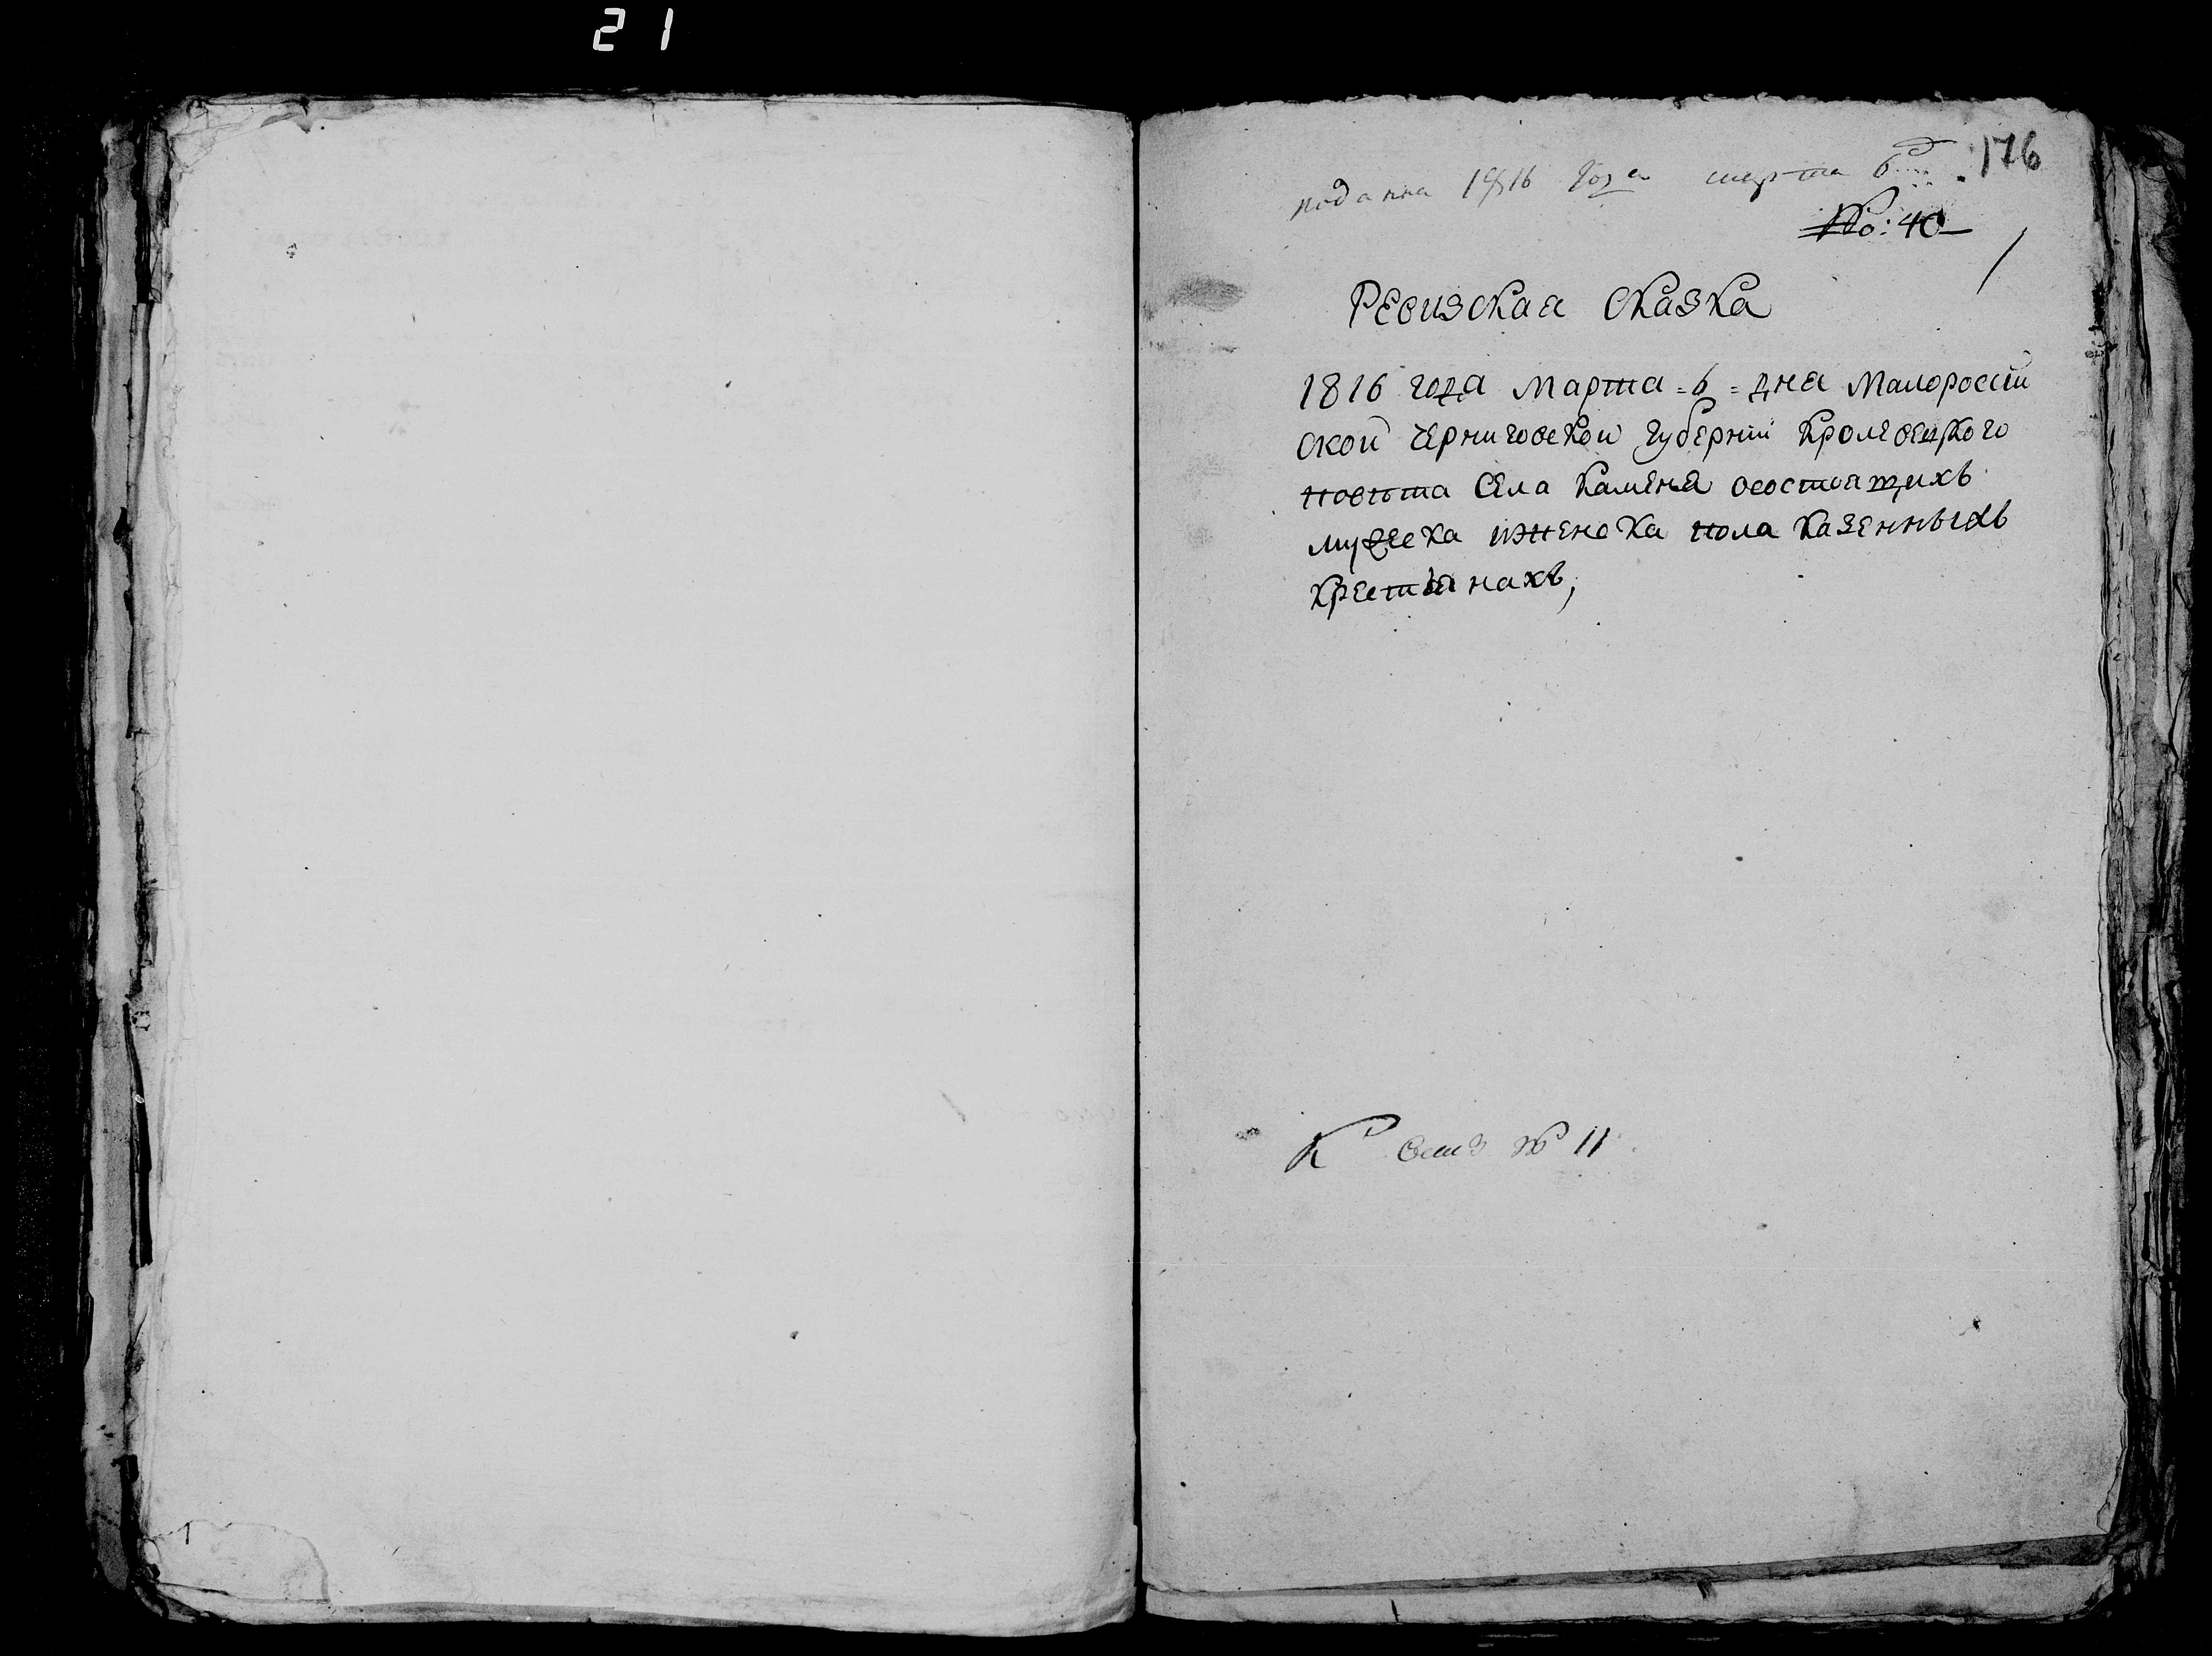 21
176
подання 1816 года марта 6 д
№: 40
Ревизская сказка
1816 года марта = 6 = дня Малоросій
ской черниговской губерніи кролевецкого
повѣта села каменя осостоящихъ
мужеска иженска пола казенныхъ
крестьянахъ,
К № 11